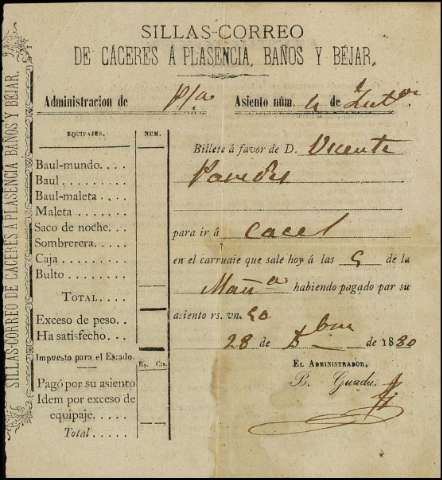 SILLAS-CORREO
DE CÁCERES Á PLASENCIA, BAÑOS Y BÉJAR.
SILLAS-CORREO DE CÁCERES Á PLASENCIA, BAÑOS Y BÉJAR.
Administracion de Pla
Asiento núm. 4
EQUIPAJES. NUM.
Baul-mundo
Baul
Baul-maleta
Maleta
Saco de noche
Sombrerera
Caja
Bulto
TOTAL
Exceso de peso
Ha satisfecho
Impuesto para el Estado. Rs. Cts.
Pagó por su asiento
Idem por exceso de
equipaje
Total
Billete á favor de D. Vicente
Paredes
para ir á Cacs
en el carruaje que sale hoy á las 5 de la
Mañª habiendo pagado par su
asiento rs. vn. 50
28 de Xbre de 1880
EL ADMINISTRADOR,